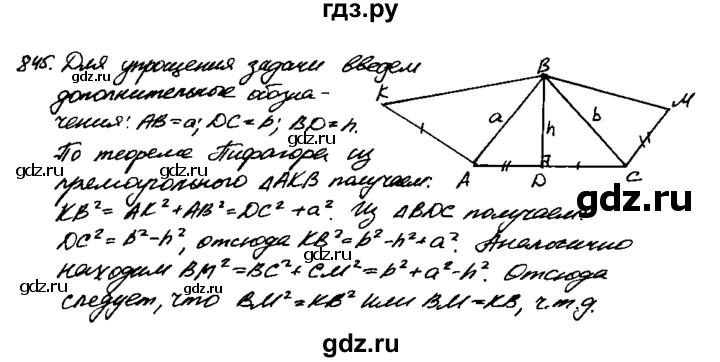 гдз.ру
845. Для упрощения задачи введем
дополнительные обозна-
чения: AB=a; DC=b; BD=h.
По теореме Пифагора из
прямоугольного △AKB получаем:
KB²= AK²+AB²=DC²+a². Из △BDC получаем
DC²= b²-h², отсюда KB²=b²-h²+a². Аналогично
находим BM²=BC²+CM²=b²+a²-h². Отсюда
следует, что BM²=KB² или BM=KB, ч.т.д.
B
K
M
a
h
b
A
D
C
gdz.ru
gdz.ru
gdz.ru
gdz.ru
gdz.ru
gdz.ru
gdz.ru
gdz.ru
gdz.ru